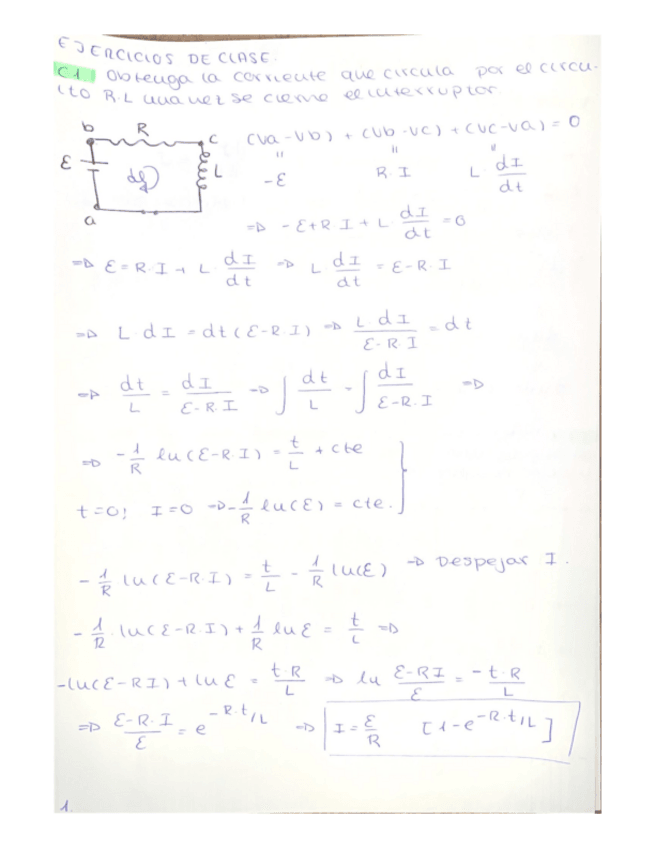 EJERCICIOS DE CLASE.
C1. Obtenga la corriente que circula por el circui-
ito R-L una vez se cierre el interruptor
b R c
(Va-Vb) + (Vb-Vc) + (Vc-Va) = 0
ε L
" " "
-ε R·I L·dI/dt
a
=D -ε+R·I+L·dI/dt=0
=D ε=R·I+L·dI/dt =D L·dI/dt = ε-R·I
=D L·dI = dt(ε-R·I) =D L·dI/ε-R·I = dt
=D dt/L = dI/ε-R·I =D ∫dt/L = ∫dI/ε-R·I =D
=D -1/R ln(ε-R·I) = t/L + cte
t=0; I=0 =D -1/R ln(ε) = cte.
-1/R ln(ε-R·I) = t/L - 1/R ln(ε) =D Despejar I.
-1/R·ln(ε-R·I) + 1/R ln ε = t/L =D
-ln(ε-RI)+ln ε = t·R/L =D ln ε-RI/ε = -t·R/L
=D ε-R·I/ε = e^-R·t/L =D I=ε/R [1-e^-R·t/L]
1.